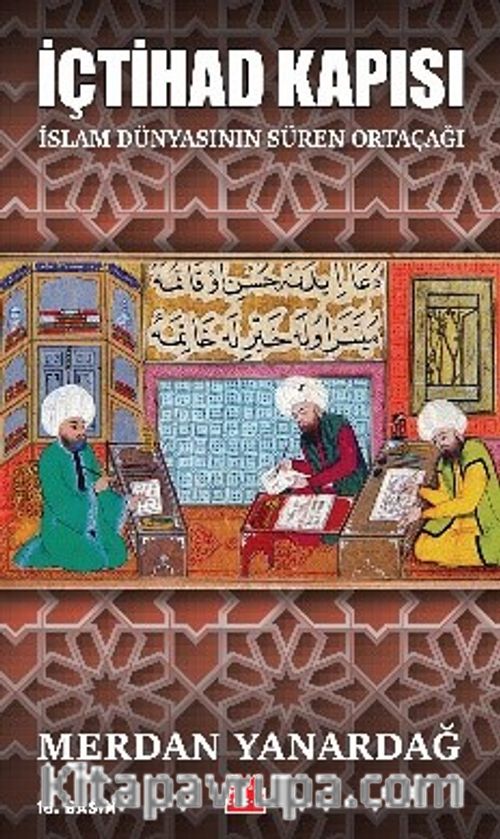 İÇTİHAD KAPISI
İSLAM DÜNYASININ SÜREN ORTAÇAĞI
MERDAN YANARDAĞ
Kitapavrupa.com